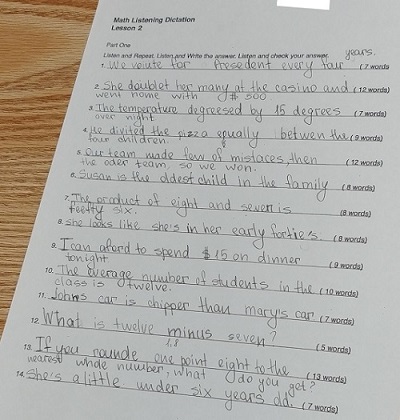 Math Listening Dictation
Lesson 2
Part One
Listen and Repeat. Listen and Write the answer. Listen and check your answer.
years.
1. We voute for Presedent every four (7 words
2. She doublet her many at the casino and (12 words)
went home with $ 500
3. The temperature degreesed by 15 degrees (7 words)
over night.
4. He divited the pizza equally betwen the (9 words)
four children.
5. Our team made few of mistaces then (12 words)
the oder team, so we won.
6. Susan is the oldest child in the family (8 words)
7. The product of eight and seven is (8 words)
feefty six.
8. she looks like she's in her early fortie's. (8 words)
9. I can aford to spend $15 on dinner (9 words)
tonight
10. The everage number of students in the (10 words)
class is twelve.
11. Johns car is chipper than mary's car (7 words)
12. What is twelve minus seven? (5 words)
1,8
13. If you rounde one point eight to the (13 words)
nearest whole number, what do you get?
14. She's a little under six years old. (7 words)